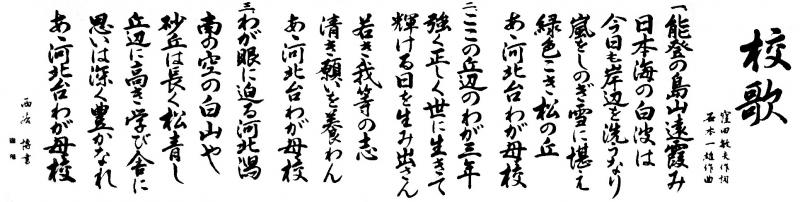 校歌
窪田敏夫作詞
石本一雄作曲
一、能登の島山遠霞み
日本海の白波は
今日も岸辺を洗うなり
嵐をしのぎ雪に堪え
緑色こき松の丘
あゝ河北台わが母校
二、ここの丘辺のわが三年
強く正しく世に生きて
輝ける日を生み出さん
若き我等の志
清き願いを養わん
あゝ河北台わが母校
三、わが眼に迫る河北潟
南の空の白山や
砂丘は長く松青し
丘辺に高き学び舎に
思いは深く豊かなれ
あゝ河北台わが母校
書